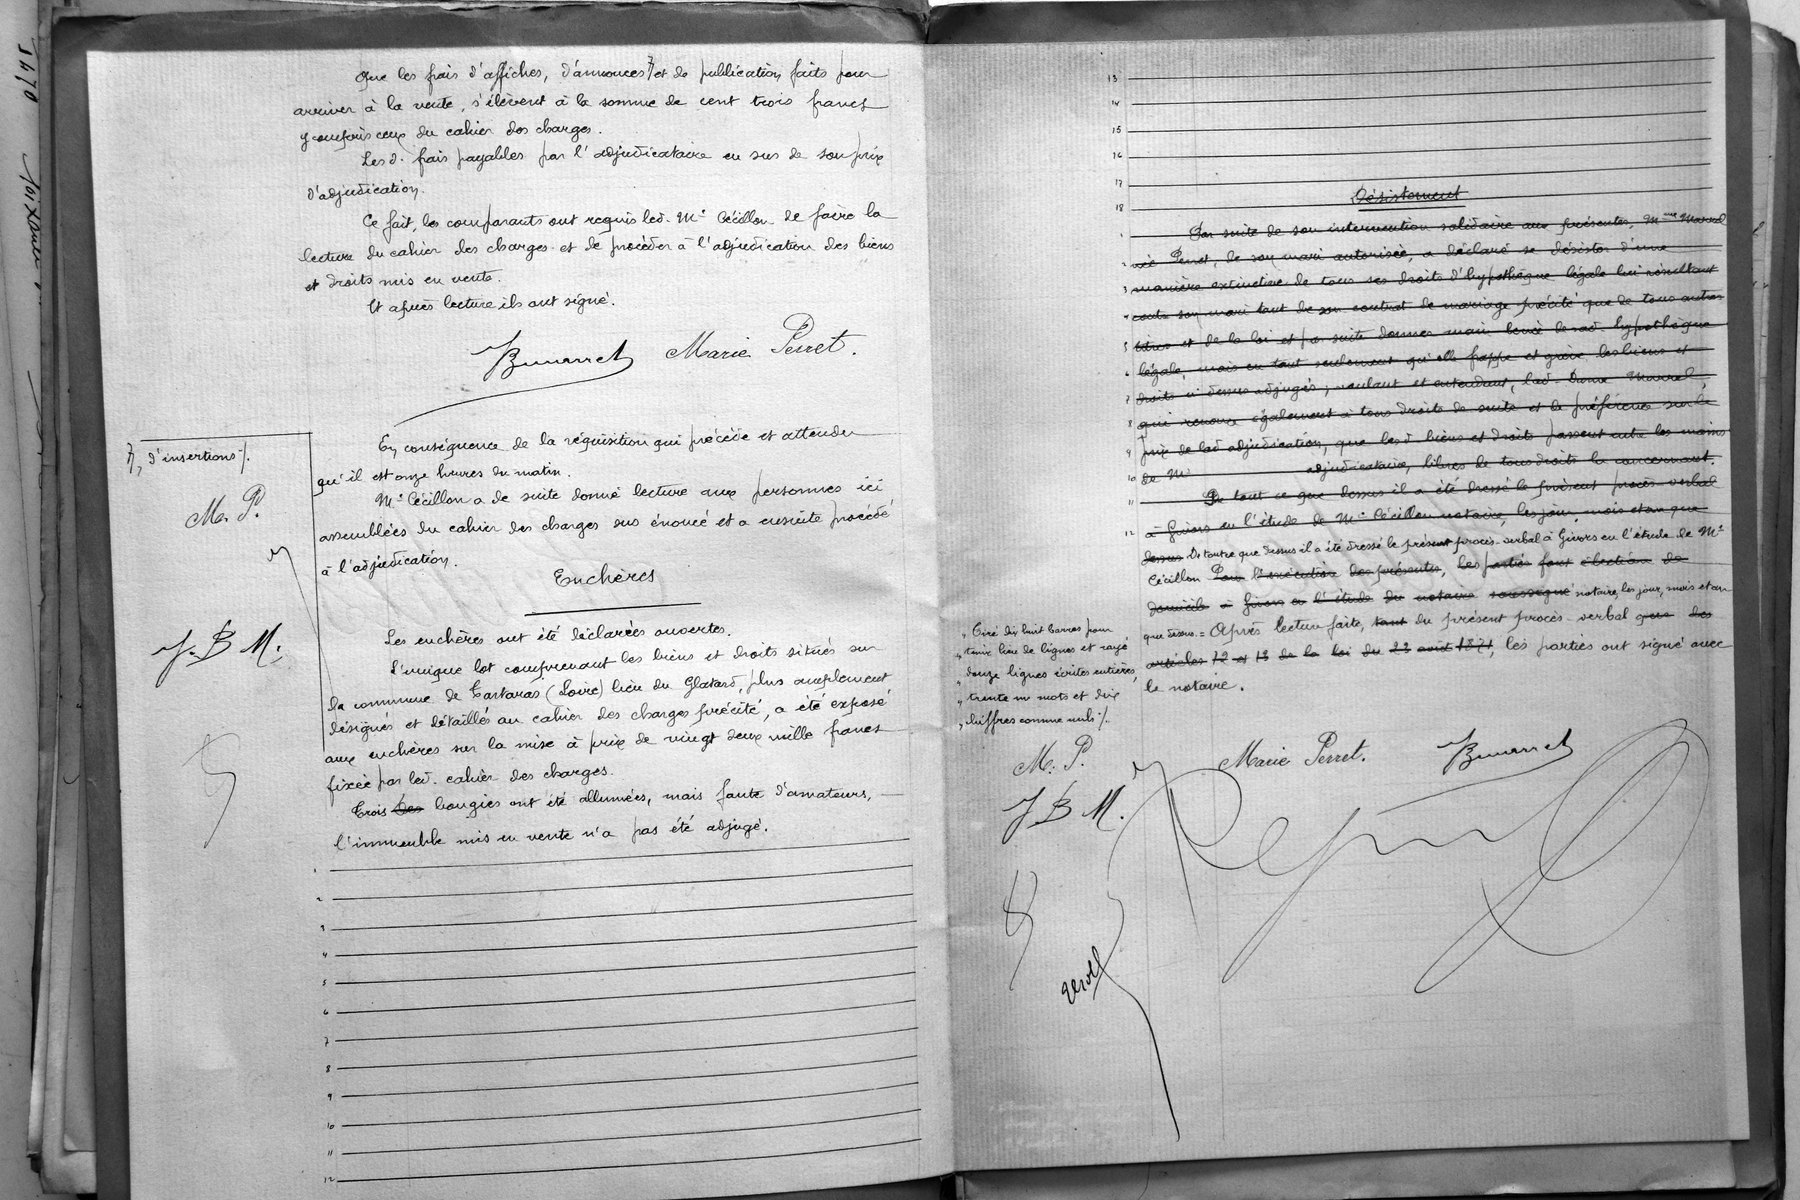 Que les frais d'affiches, d'annonces et de publication faits pour
arriver à la vente, s'élèvent à la somme de cent trois francs
y compris ceux du cahier des charges.
Les d. frais payables par l'adjudicataire en sus de son prix
d'adjudication.
Ce fait, les comparants ont requis led. Me Cécillon de faire la
lecture du cahier des charges et de procéder à l'adjudication des biens
et droits mis en vente.
Et après lecture ils ont signé.
Marie Perret.
En conséquence de la réquisition qui précède et attendu
qu'il est onze heures du matin.
Me Cécillon a de suite donné lecture aux personnes ici
assemblées du cahier des charges sus énoncé et a ensuite procédé
à l'adjudication.
d'insertions /.
M. P.
J. B M.
Enchères
Les enchères ont été déclarées ouvertes.
L'unique lot comprenant les biens et droits situés sur
la commune de Tartaras (Loire) lieu du Glatard, plus amplement
désignés et détaillés au cahier des charges précité, a été exposé
aux enchères sur la mise à prix de vingt deux mille francs
fixée par led. cahier des charges.
Trois des bougies ont été allumées, mais faute d'amateurs,
l'immeuble mis en vente n'a pas été adjugé.
1
2
3
4
5
6
7
8
9
10
11
12
13
14
15
16
17
18
Désistement
1 Par suite de son intervention solidaire aux présentes, Mme Marrel
2 née Perret, de son mari autorisée, a déclaré se désister d'une
3 manière extinctive de tous ses droits d'hypothèque légale lui résultant
4 contre son mari tant de son contrat de mariage précité que de tous autres
5 titres et de la loi et par suite donner main levée de lad hypothèque
6 légale, mais en tant seulement qu'elle frappe et grève les biens et
7 droits ci dessus adjugés; voulant et entendant, lad. Dame Marrel,
8 qui renonce également à tous droits de suite et de préférence sur le
9 prix de lad adjudication, que lesd biens et droits passent entre les mains
10 de M adjudicataire, libres de tous droits la concernant.
11 De tout ce que dessus il a été dressé le présent procès-verbal
12 à Givors en l'étude de Me Cécillon notaire, les jour, mois et an que
dessus De tout ce que dessus il a été dressé le présent procès-verbal à Givors en l'étude de Me
Cécillon Pour l'exécution des présentes, les parties font élection de
domicile à Givors en l'étude du notaire soussigné notaire, les jour, mois et an
que dessus. = Après lecture faite, tant du présent procès-verbal que des
articles 12 et 13 de la loi du 23 août 1871, les parties ont signé avec
le notaire.
Tiré dix huit barres pour
tenir lieu de lignes et rayé
douze lignes écrites entières,
trente un mots et dix
chiffres comme nuls /.
M. P.
J B M.
Marie Perret.